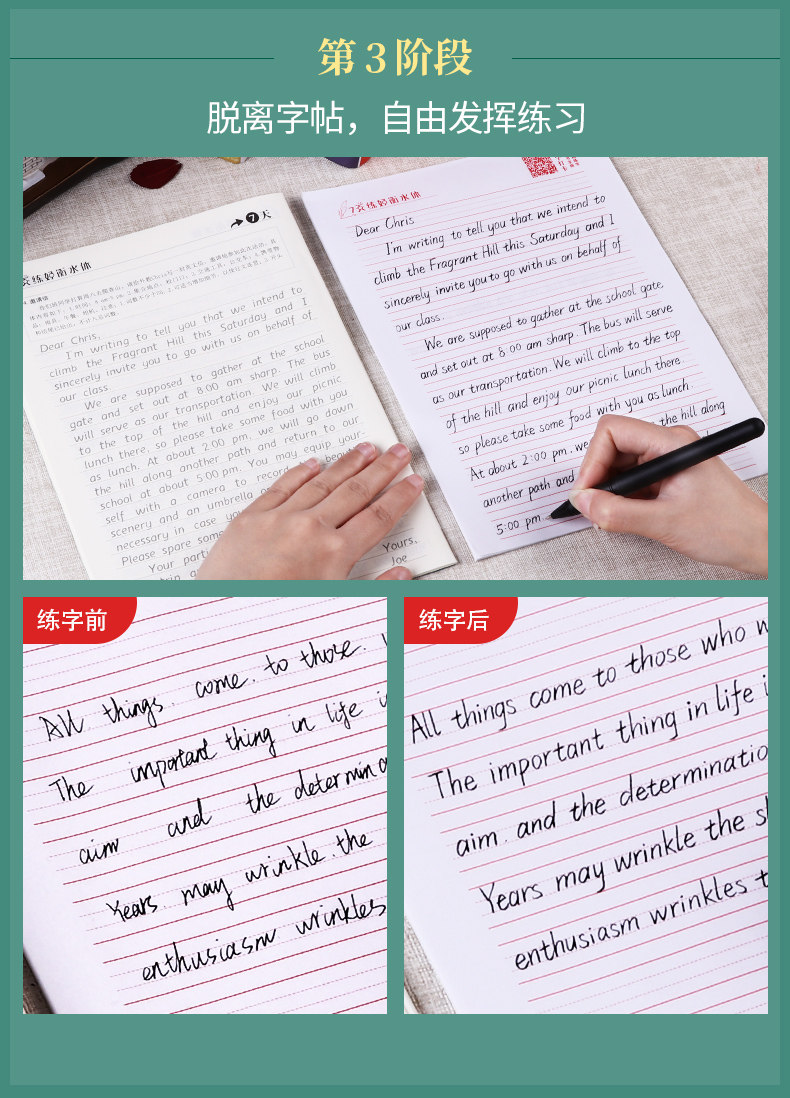 第3阶段
脱离字帖，自由发挥练习
7天
练好衡水体
Dear Chris,
I'm writing to tell you that we intend to
climb the Fragrant Hill this Saturday and I
sincerely invite you to go with us on behalf of
our class.
We are supposed to gather at the school
gate and set out at 8:00 am sharp. The bus
will serve as our transportation. We will climb
to the top of the hill and enjoy our picnic
lunch there, so please take some food with you
as lunch. At about 2:00 pm, we will go down
the hill along another path and return to our
school at about 5:00 pm. You may equip your-
self with a camera to record the
scenery and an umbrella
necessary in case you
Please spare some
Your
Yours,
Joe
7天练好衡水体
Dear Chris
I'm writing to tell you that we intend to
climb the Fragrant Hill this Saturday and I
sincerely invite you to go with us on behalf of
our class.
We are supposed to gather at the school gate
and set out at 8:00 am sharp. The bus will serve
as our transportation. We will climb to the top
of the hill and enjoy our picnic lunch there.
so please take some food with you as lunch.
At about 2:00 pm. we the hill along
another path and
5:00 pm
练字前
All things. come. to those.
The important thing in life
aim and the determin
Years may wrinkle. the
enthusiasm wrinkles
练字后
All things come to those who
The important thing in life
aim. and the determinatio
Years may wrinkle the
enthusiasm wrinkles